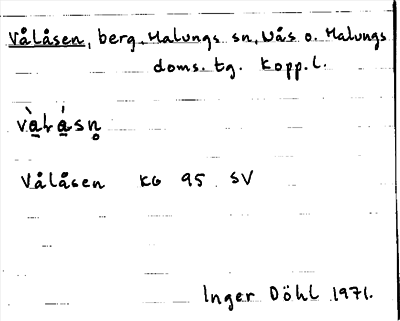 Vålåsen, berg. Malungs sn, Nås o. Malungs
doms. tg. Kopp. l.
và̱ɫá̱sn̥
Vålåsen KG 95 SV
Inger Döhl 1971.